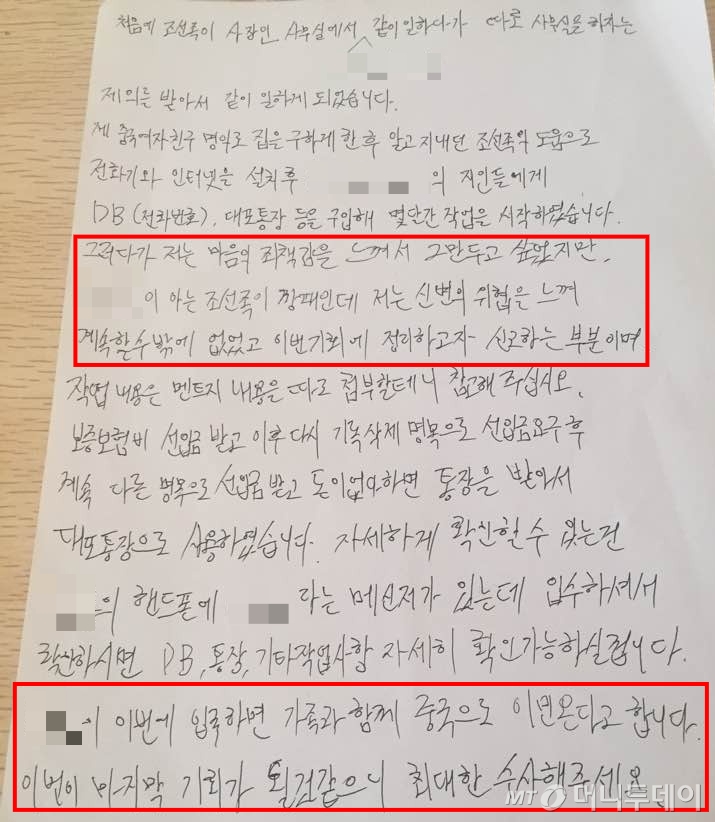 처음에 조선족이 사장인 사무실에서 같이 일하다가 따로 사무실을 하자는
제의를 받아서 같이 일하게 되었습니다.
제 중국여자친구 명의로 집을 구하게 한 후 알고 지내던 조선족의 도움으로
전화기와 인터넷을 설치후 의 지인들에게
DB (전화번호), 대포통장 등을 구입해 몇달간 작업을 시작하였습니다.
그러다가 저는 마음의 죄책감을 느껴서 그만두고 싶었지만,
이 아는 조선족이 깡패인데 저는 신변의 위협을 느껴
계속할수 밖에 없었고 이번기회에 정리하고자 신고하는 부분이며
작업 내용은 멘트지 내용을 따로 첨부할테니 참고해 주십시오.
보증보험비 선입금 받고 이후 다시 기록삭제 명목으로 선입금요구 후
계속 다른 명목으로 선입금 받고 돈이없다하면 통장을 받아서
대포통장으로 사용하였습니다. 자세하게 확신할 수 있는건
의 핸드폰에 라는 메신저가 있는데 입수하셔서
확인하시면 DB, 통장, 기타작업사항 자세히 확인가능하실겁니다.
이 이번에 입국하면 가족과 함께 중국으로 이민온다고 합니다.
이번이 마지막 기회가 될것같으니 최대한 수사해주세요
MT 머니투데이